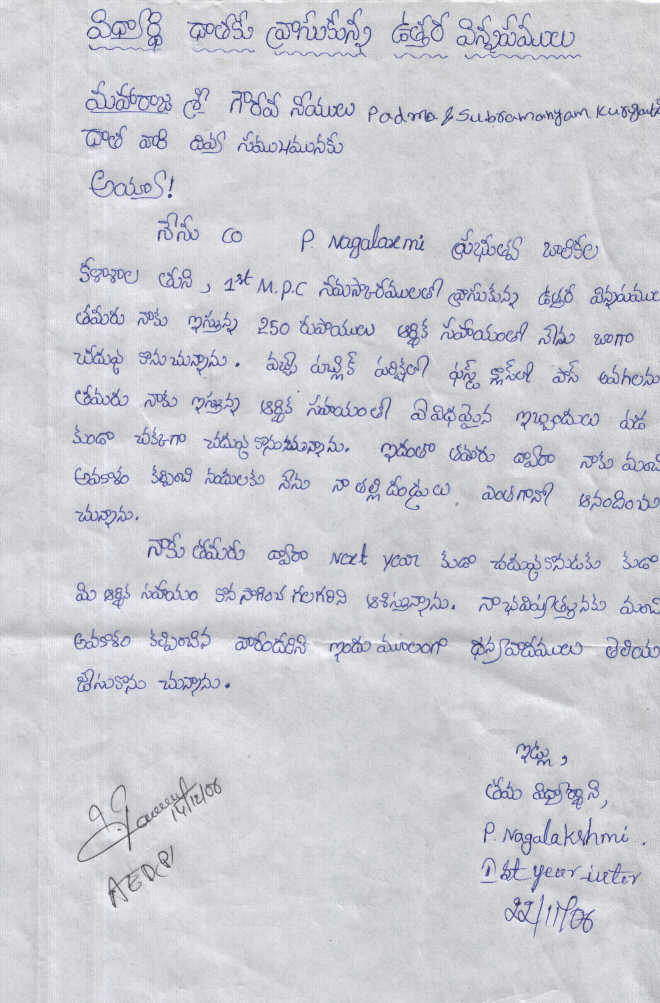 విద్యార్థి దాతకు వ్రాసుకున్న ఉత్తర విన్నపములు
మహారాజ శ్రీ గౌరవ నీయులు Padma & Subramanyam
దాత వారి దివ్య సముఖమునకు
అయ్యా!
నేను CO P. Nagalaxmi ప్రభుత్వ బాలికల
కళాశాల తుని, 1st M.P.C నమస్కారములతో వ్రాసుకున్న ఉత్తర విన్నపములు
తమరు నాకు ఇస్తున్న 250 రుపాయులు ఆర్థిక సహాయంతో నేను బాగా
చదువు కొనుచున్నాను. వచ్చే పబ్లిక్ పరిక్షలో ఫస్ట్ క్లాస్‌లో పాస్ అవగలను
తమరు నాకు ఇస్తున్న ఆర్థిక సహయంతో ఏ విధమైన ఇబ్బందులు పడ
కుండా చక్కగా చదువు కొనుచున్నాను. ఇదంతా తమరు ద్వారా నాకు మంచి
అవకాశం కల్పించి నందులకు నేను నా తల్లి దండ్రులు ఎంతగానో ఆనందించు
చున్నాను.
నాకు తమరు ద్వారా Next year కుడా చదువుకొనుటకు కుడా
మి ఆర్థిక సహాయం కొన సాగించ గలగరిని ఆశిస్తున్నాను. నా భవిష్యత్తునకు మంచి
అవకాశం కల్పించిన వారందరికి ఇందు మూలంగా ధన్యవాదములు తెలియ
జేసుకొను చున్నాను.
ఇట్లు,
తమ విద్యార్థిని,
P. Nagalakshmi.
1st year inter
22/11/06
14/12/06
AED(P)